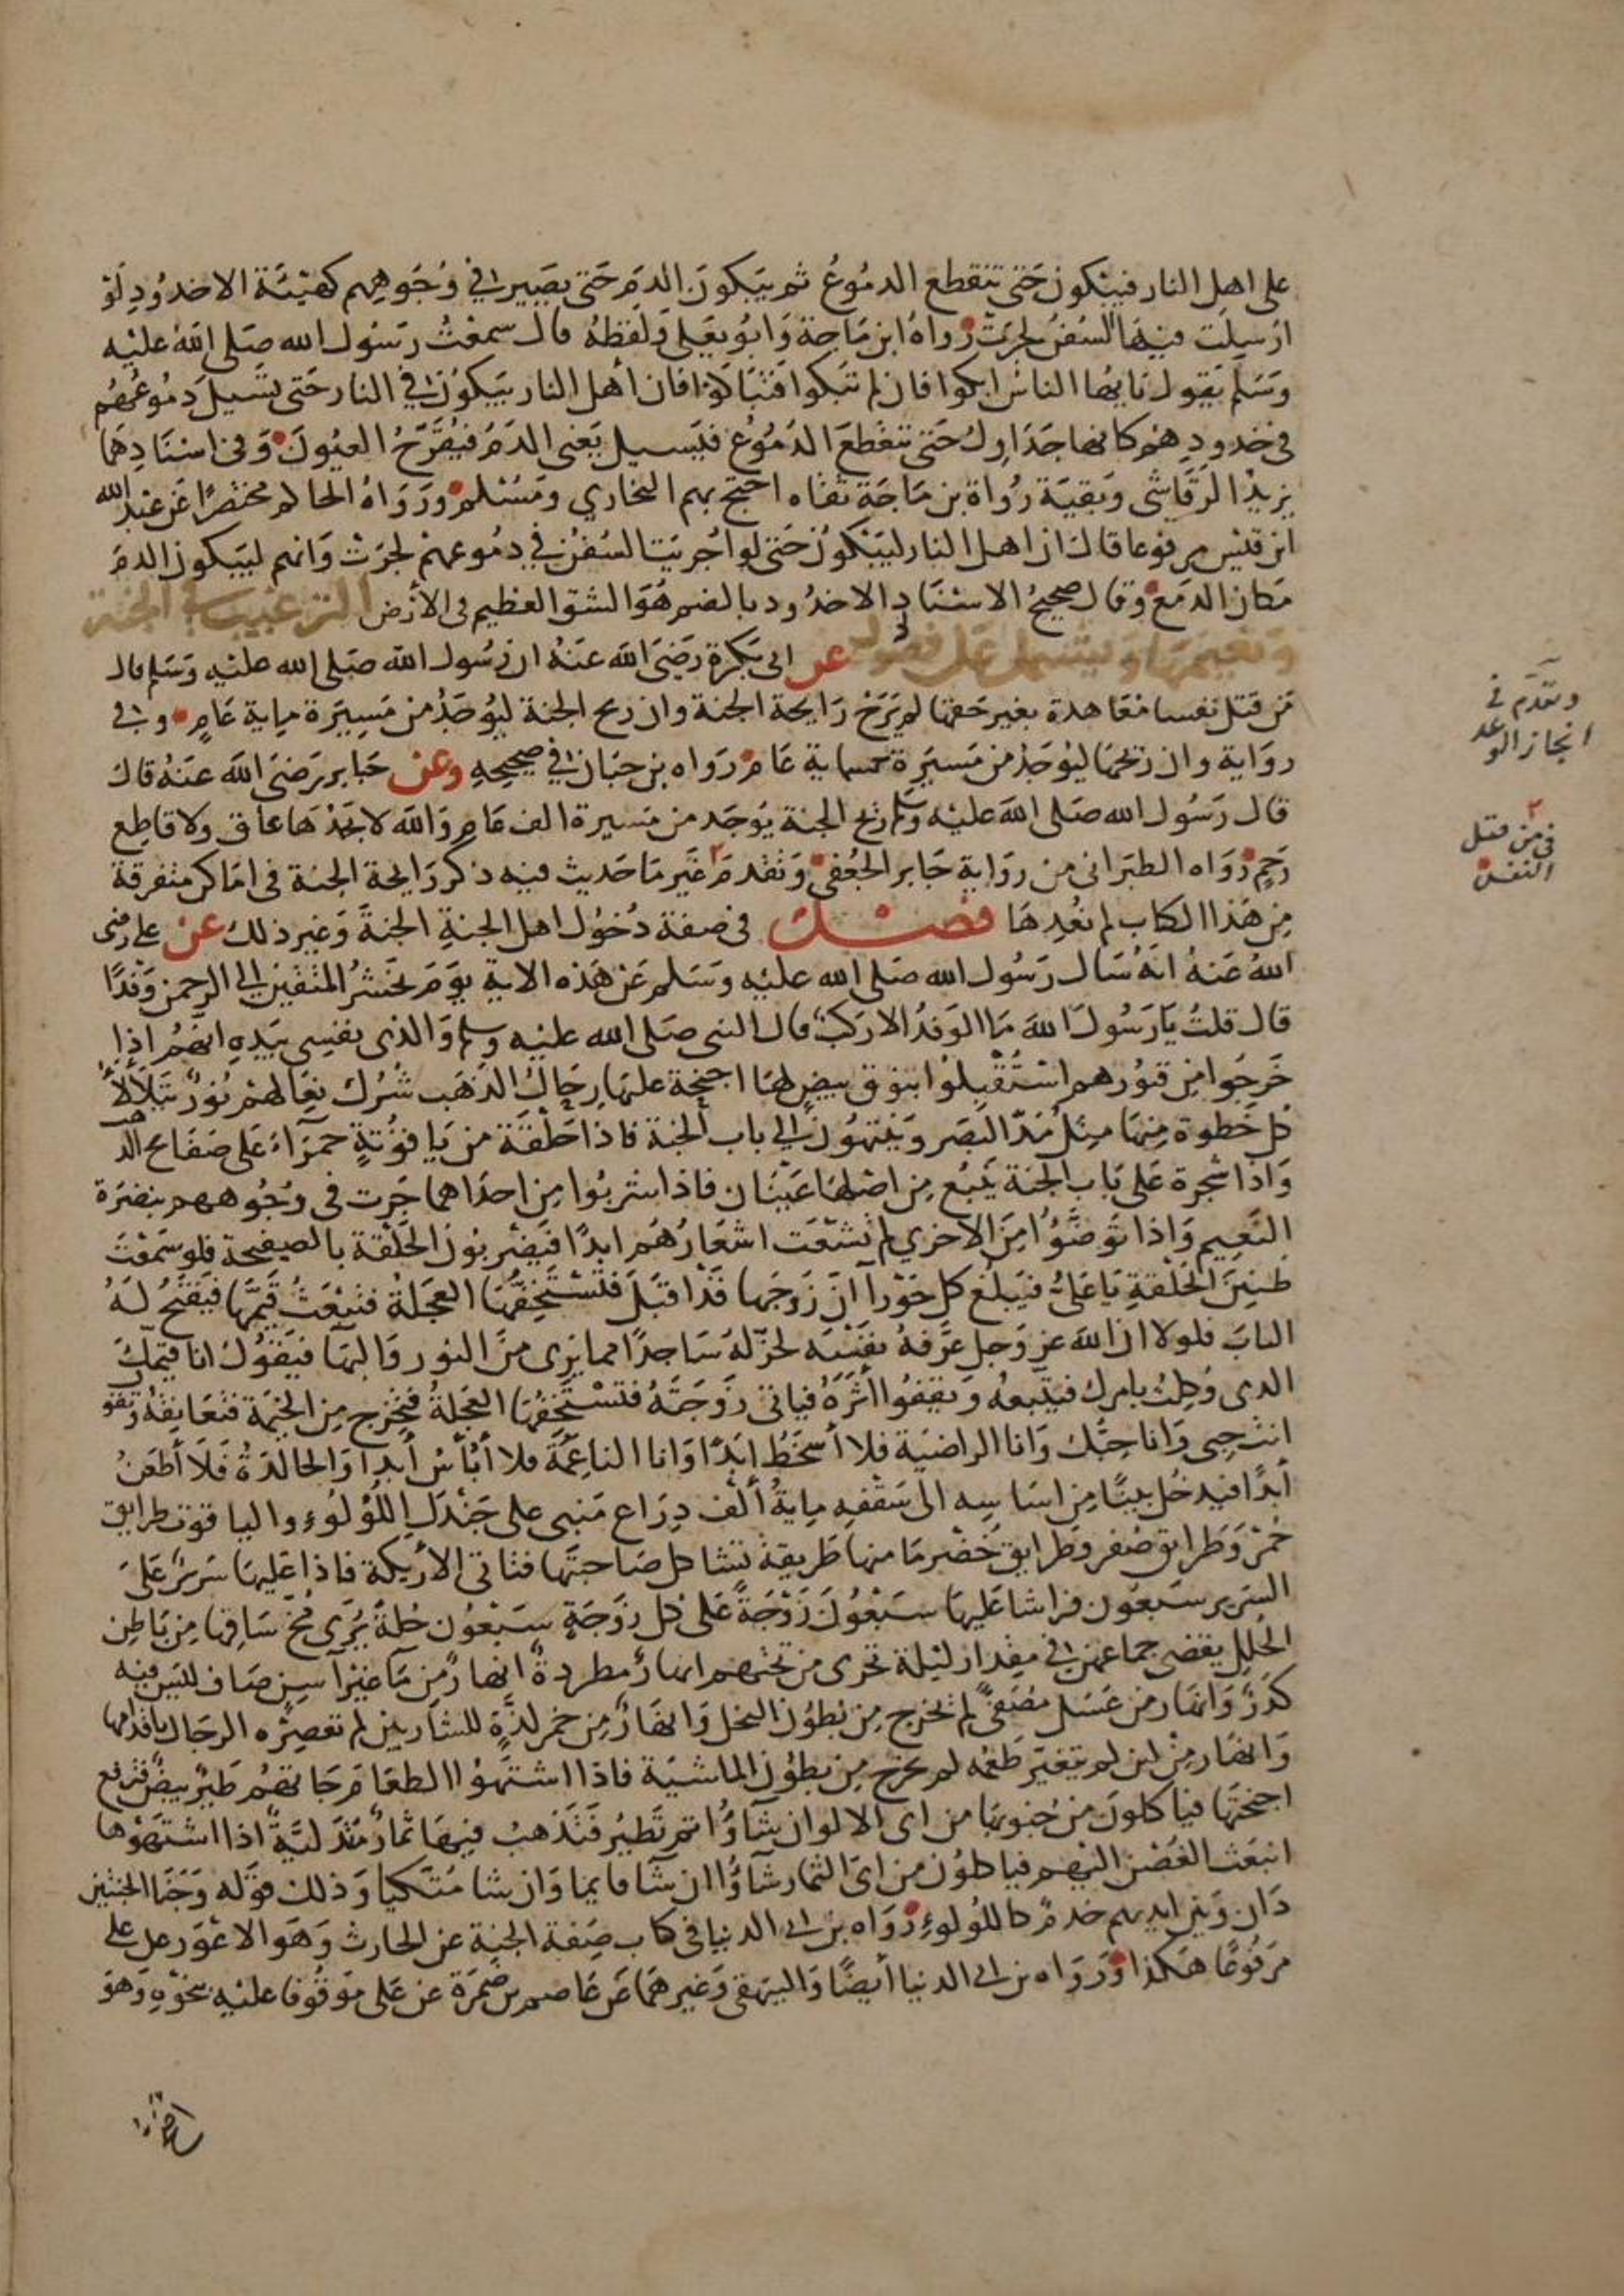 على اهل النار فيبكون حتى تنقطع الدموع ثم يبكون الدم حتى يصير في وجوههم كهيئة الاخدود لو
ارسلت فيها السفن لجرت رواه ابن ماجة وابو يعلى ولفظه قال سمعت رسول الله صلى الله عليه
وسلم يقول يايها الناس ابكوا فان لم تبكوا فتباكوا فان أهل النار يبكون في النار حتى تسيل دموعهم
في خدودهم كانها جداول حتى تنقطع الدموع فيسيل يعنى الدم فيقرح العيون وفي اسنادهما
يزيد الرقاشي وبقية رواة بن ماجة ثقاه احتج بهم البخاري ومسلم ورواه الحاكم مختصرًا عن عبد الله
ابن قيس مرفوعا قال ان اهل النار ليبكون حتى لو اجريت السفن في دموعهم لجرت وانهم ليبكون الدم
مكان الدمع وقال صحيح الاسناد الاخدود بالضم هو الشق العظيم في الأرض الترغيب في الجنة
ونعيمها ويشتمل على فصول عن ابى بكرة رضى الله عنه ان رسول الله صلى الله عليه وسلم قال
من قتل نفسا معاهدة بغير حقها لم يرح رايحة الجنة وان ريح الجنة ليوجد من مسيرة ماية عام وفي
رواية وان ريحها ليوجد من مسيرة خمسماية عام رواه بن حبان في صحيحه وعن جابر رضى الله عنه قال
قال رسول الله صلى الله عليه وسلم ريح الجنة يوجد من مسيرة الف عام والله لا يجدها عاق ولا قاطع
رحم رواه الطبرانى من رواية جابر الجعفي وتقدم غير ما حديث فيه ذكر رايحة الجنة في اماكن متفرقة
من هذا الكتاب لم نعدها فصل في صفة دخول اهل الجنة الجنة وغير ذلك عن على رضى
الله عنه انه سال رسول الله صلى الله عليه وسلم عن هذه الاية يوم نحشر المتقين الى الرحمن وفدًا
قال قلت يا رسول الله ما الوفد الا ركب قال النبى صلى الله عليه وسلم والذى نفسى بيده انهم اذا
خرجوا من قبورهم استقبلوا بنوق بيض لها اجنحة عليها رحال الذهب شرك نعالهم نور يتلألأ
كل خطوة منها مثل مد البصر وينتهون الى باب الجنة فاذا حلقة من ياقوتة حمراء على صفايح الذهب
واذا شجرة على باب الجنة ينبع من اصلها عينان فاذا شربوا من احداهما جرت في وجوههم بنضرة
النعيم واذا توضئوا من الاخري لم تشعث اشعارهم ابدًا فيضربون الحلقة بالصفيحة فلو سمعت
طنين الحلقة يا على فيبلغ كل حورآ ان زوجها قد اقبل فتستخفها العجلة فتبعث قيمها فيفتح له
الباب فلولا ان الله عز وجل عرفه نفسه لخر له ساجدًا مما يرى من النور والبها فيقول انا قيمك
الدى وكلت بامرك فيتبعه ويقفوا أثره فياتى زوجته فتستخفها العجلة فتخرج من الخيمة فتعانقه وتقول
انت حبى وانا حبك وانا الراضية فلا أسخط ابدًا وانا الناعمة فلا أبأس أبدا والخالدة فلا أظعن
أبدًا فيدخل بيتًا من اساسه الى سقفه ماية ألف دراع مبنى على جندل اللؤلؤ والياقوت طرايق
حمر وطرايق صفر وطرايق خضر ما منها طريقة تشاكل صاحبتها فتاتى الأريكة فاذا عليها سرير على
السرير سبعون فراشا عليها سبعون زوجة على كل زوجة سبعون حلة يرى مخ ساقها من باطن
الحلل يقضى جماعهن في مقدار ليلة تجرى من تحتهم انهار مطردة انهار من ما غير آسن صاف لليس فيه
كدر وانهار من عسل مصفى لم يخرج من بطون النحل وانهار من خمر لذة للشاربين لم تعصره الرجال باقدامها
وانهار من لبن لم يتغير طعمه لم يخرج من بطون الماشية فاذا اشتهوا الطعام جاتهم طير بيض فترفع
اجنحتها فياكلون من جنوبها من اى الالوان شاؤا ثم تطير فتذهب فيها ثمار متدلية اذا اشتهوها
انبعث الغصن اليهم فياكلون من اى الثمار شاؤا ان شا قايما وان شا متكيا وذلك قوله وجنا الجنتين
دان وبين ايديهم خدم كاللؤلوء رواه بن ابى الدنيا في كتاب صفة الجنة عن الحارث وهو الاعور عن على
مرفوعًا هكذا ورواه بن ابى الدنيا أيضًا والبيهقي وغيرهما عن عاصم بن ضمرة عن على موقوفا عليه بنحوه وهو
وتقدم في
انجاز الوعد
في من قتل
النفس